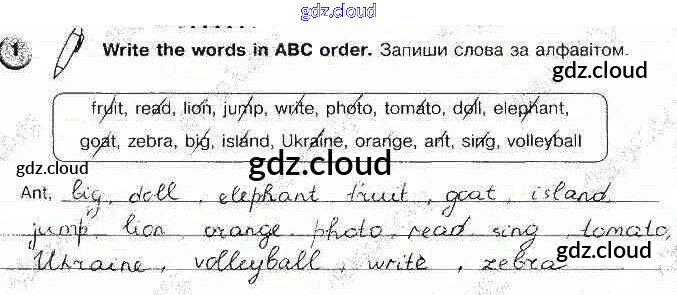 gdz.cloud
1 Write the words in ABC order. Запиши слова за алфавітом.
gdz.cloud
fruit, read, lion, jump, write, photo, tomato, doll, elephant,
goat, zebra, big, island, Ukraine, orange, ant, sing, volleyball
gdz.cloud
gdz.cloud
gdz.cloud
Ant, big, doll, elephant fruit, goat, island,
jump, lion, orange, photo, read sing, tomato,
gdz.cloud
Ukraine, volleyball, write, zebra
gdz.cloud